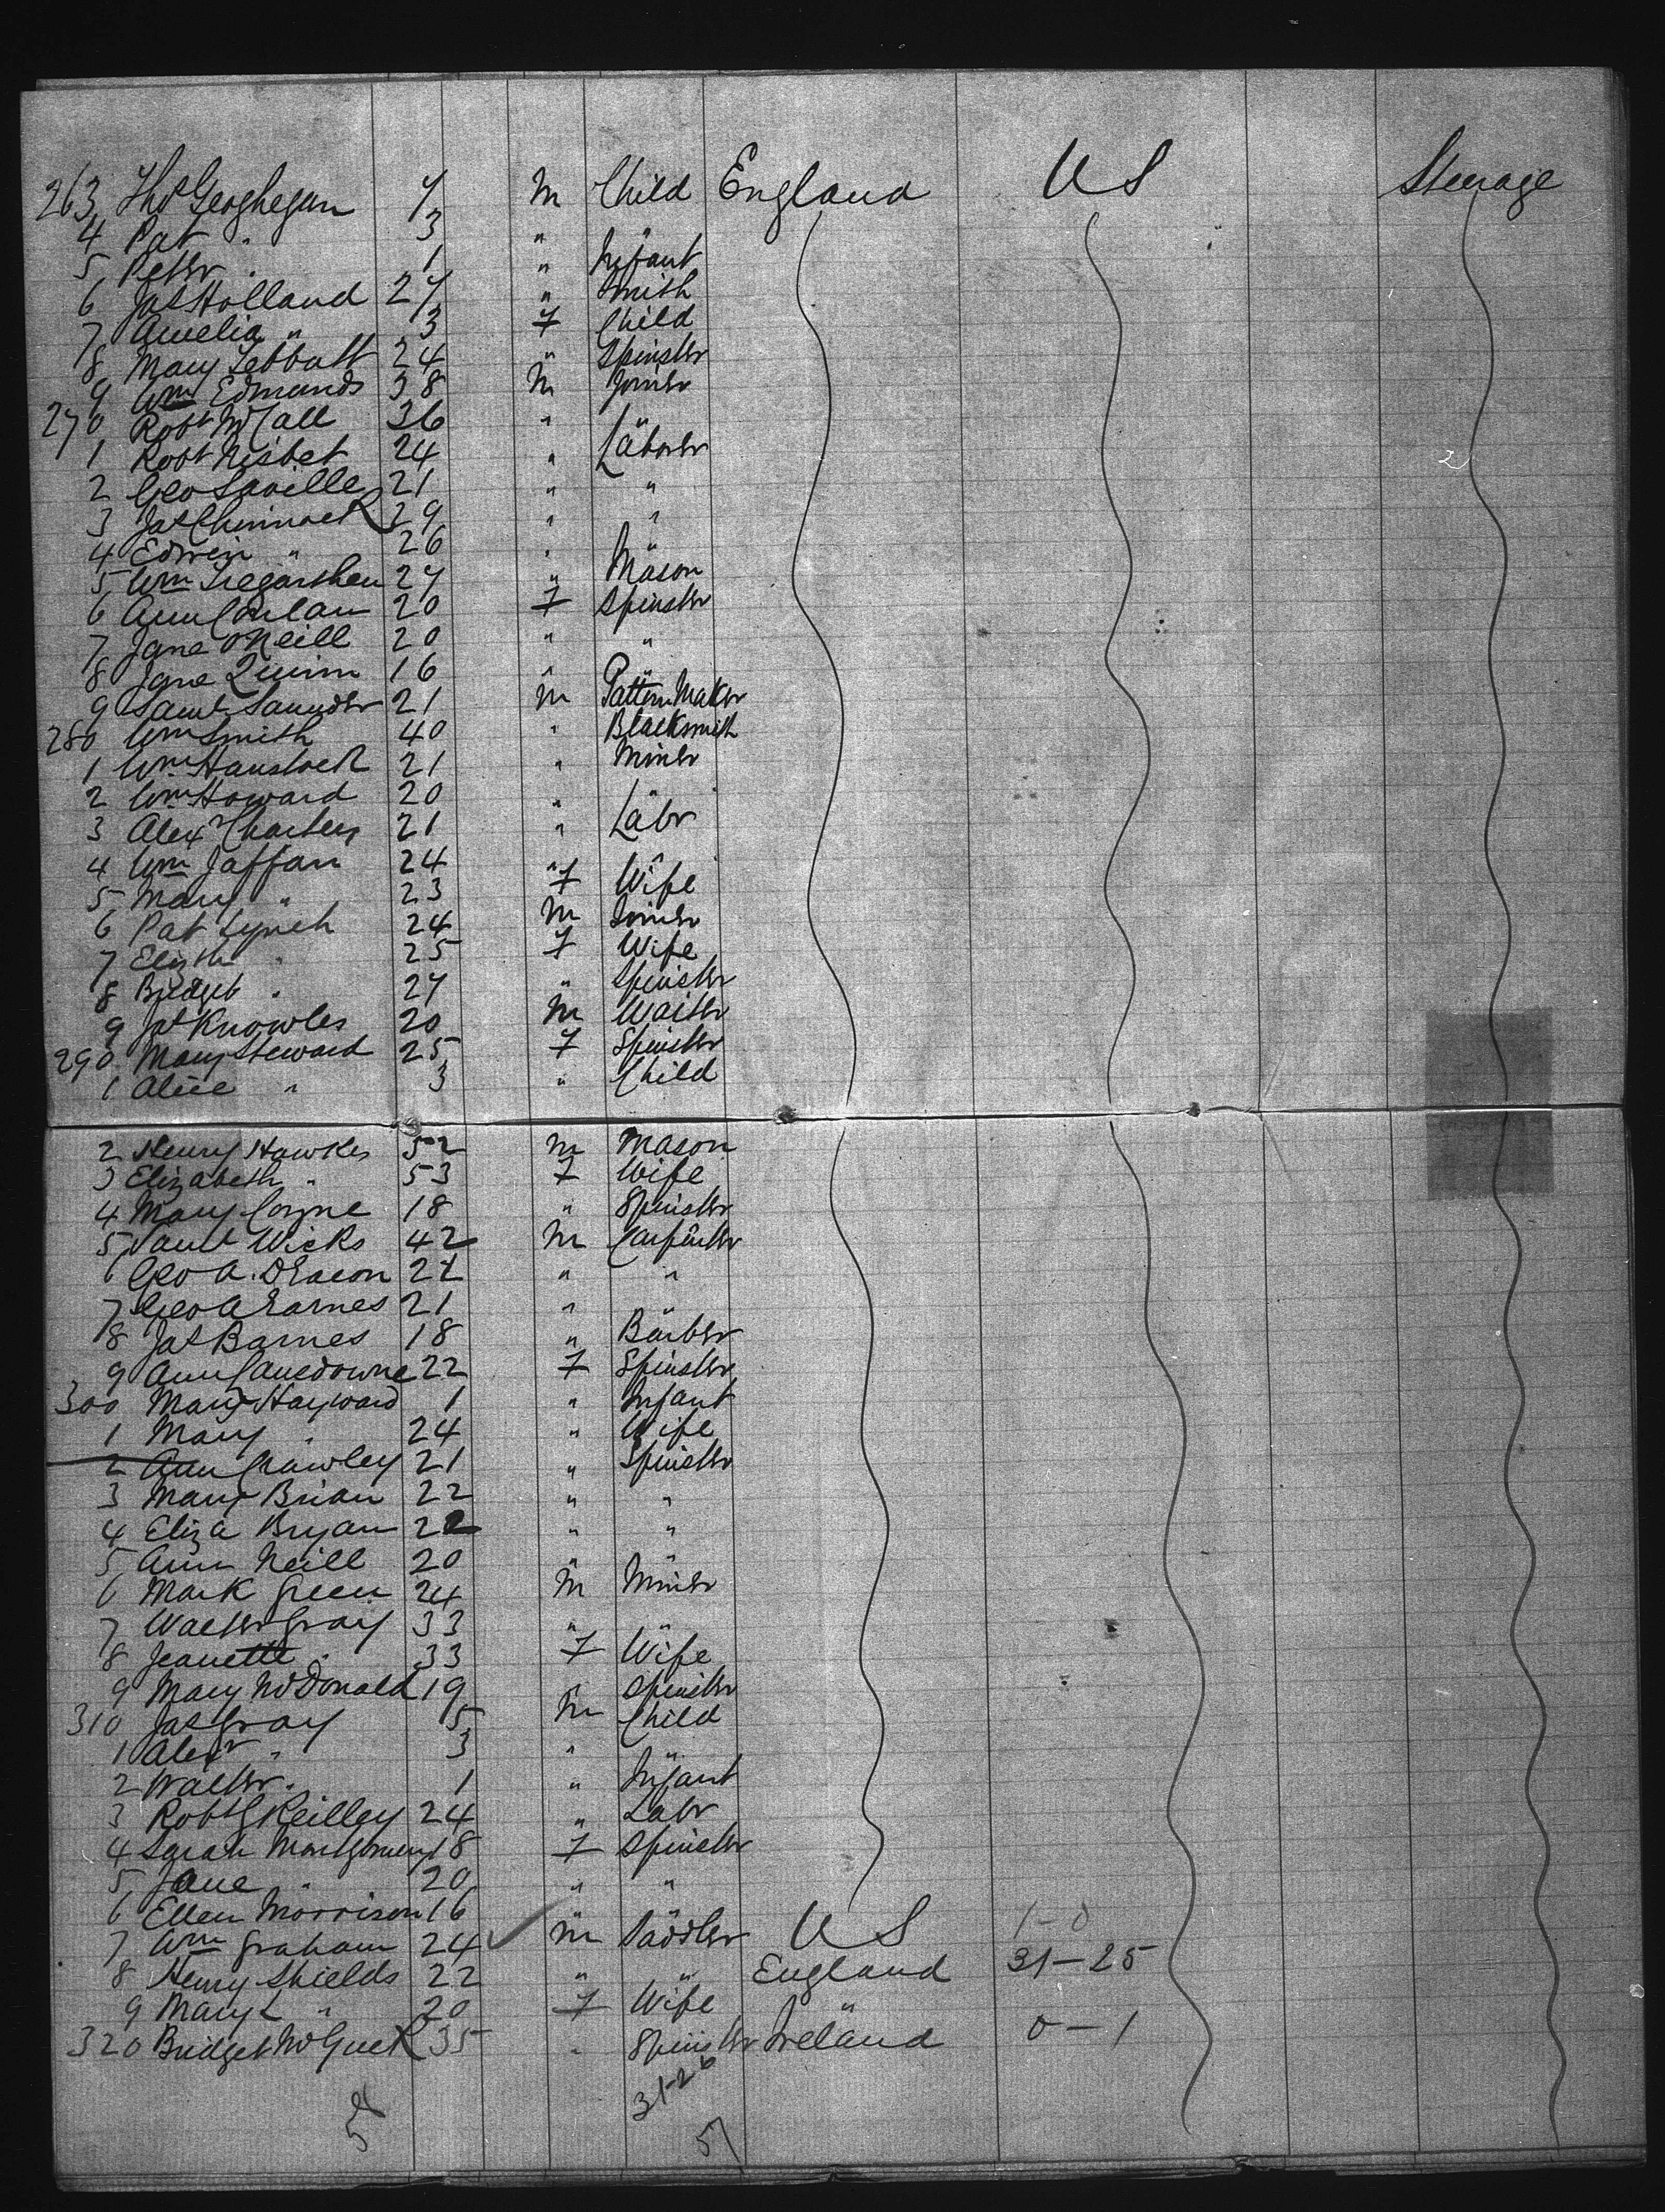 263 Thos Geoghegan 7 M Child England US Steerage
4 Pat " 3 " "
5 Peter " 1 " Infant
6 Jas Holland 27 " Smith
7 Amelia " 3 F Child
8 Mary Tebbutt 24 " Spinster
9 Wm Edmunds 38 M Joiner
270 Robt McCall 36 " "
1 Robt Nisbet 24 " Laborer
2 Geo Saville 21 " "
3 Jas Chinnock 29 " "
4 Edwin " 26 " "
5 Wm Tregarthen 27 " Mason
6 Ann Conlan 20 F Spinster
7 Jane O'Neill 20 " "
8 Jane Quinn 16 " "
9 Saml Saunder 21 M Pattern Maker
280 Wm Smith 40 " Blacksmith
1 Wm Hanslock 21 " Miner
2 Wm Howard 20 " "
3 Alexr Charters 21 " Labr
4 Wm Jaffan 24 " "
5 Mary " 23 F Wife
6 Pat Lynch 24 M Joiner
7 Elizth " 25 F Wife
8 Bridget " 27 " Spinster
9 Jas Knowles 20 M Waiter
290 Mary Steward 25 F Spinster
1 Alice " 3 " Child
2 Henry Hawkes 52 M Mason
3 Elizabeth " 53 F Wife
4 Mary Coyne 18 " Spinster
5 Saml Wicks 42 M Carpenter
6 Geo A. Deacon 22 " "
7 Geo A Earnes 21 " "
8 Jas Barnes 18 " Barber
9 Ann Cansdowne 22 F Spinster
300 Mary Hayward 1 " Infant
1 Mary " 24 " Wife
2 Ann Crawley 21 " Spinster
3 Mary Brian 22 " "
4 Eliza Bryan 22 " "
5 Ann Neill 20 " "
6 Mark Green 24 M Miner
7 Walter Gray 33 " "
8 Jeanette " 33 F Wife
9 Mary McDonald 19 " Spinster
310 Jas Gray 5 M Child
1 Alexr " 3 " "
2 Walter " 1 " Infant
3 Robt G Reilley 24 " Labr
4 Sarah Montgomery 18 F Spinster
5 Jane " 20 " "
6 Ellen Morrison 16 " "
7 Wm Graham 24 M Sadler US 1-0
8 Henry Shields 22 " " England 31-25
9 Mary L " 20 F Wife "
320 Bridget McGuck 35 " Spinster Ireland 0-1
31-26
57